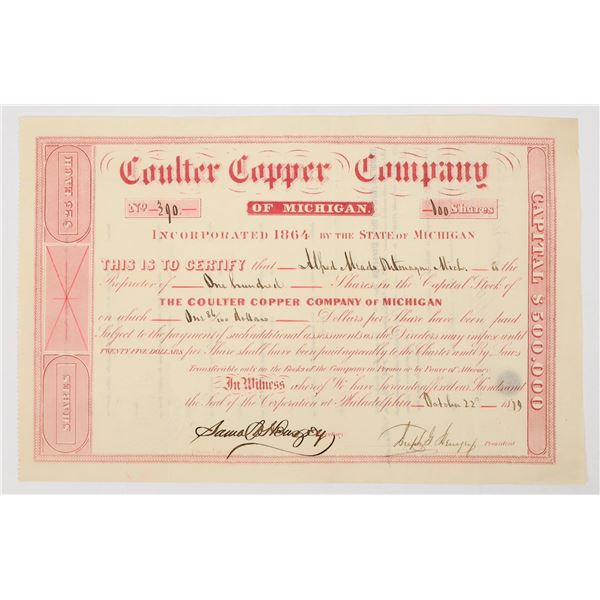 Coulter Copper Company
No. 390. OF MICHIGAN. 100 Shares
INCORPORATED 1864 BY THE STATE OF MICHIGAN
THIS IS TO CERTIFY that Alfred Meads Ontonagon Mich. is the
Proprietor of One hundred Shares in the Capital Stock of
THE COULTER COPPER COMPANY OF MICHIGAN
on which One 86/100 dollars Dollars per Share have been paid
Subject to the payment of such additional assessments as the Directors may impose until
TWENTY FIVE DOLLARS per Share shall have been paid agreeably to the Charter and By Laws
Transferable only on the Books of the Company in Person or by Power of Attorney
In Witness whereof We have hereunto affixed our Hands and
the Seal of the Corporation at Philadelphia October 22d 1879
President
$25 EACH
SHARES
CAPITAL $500,000